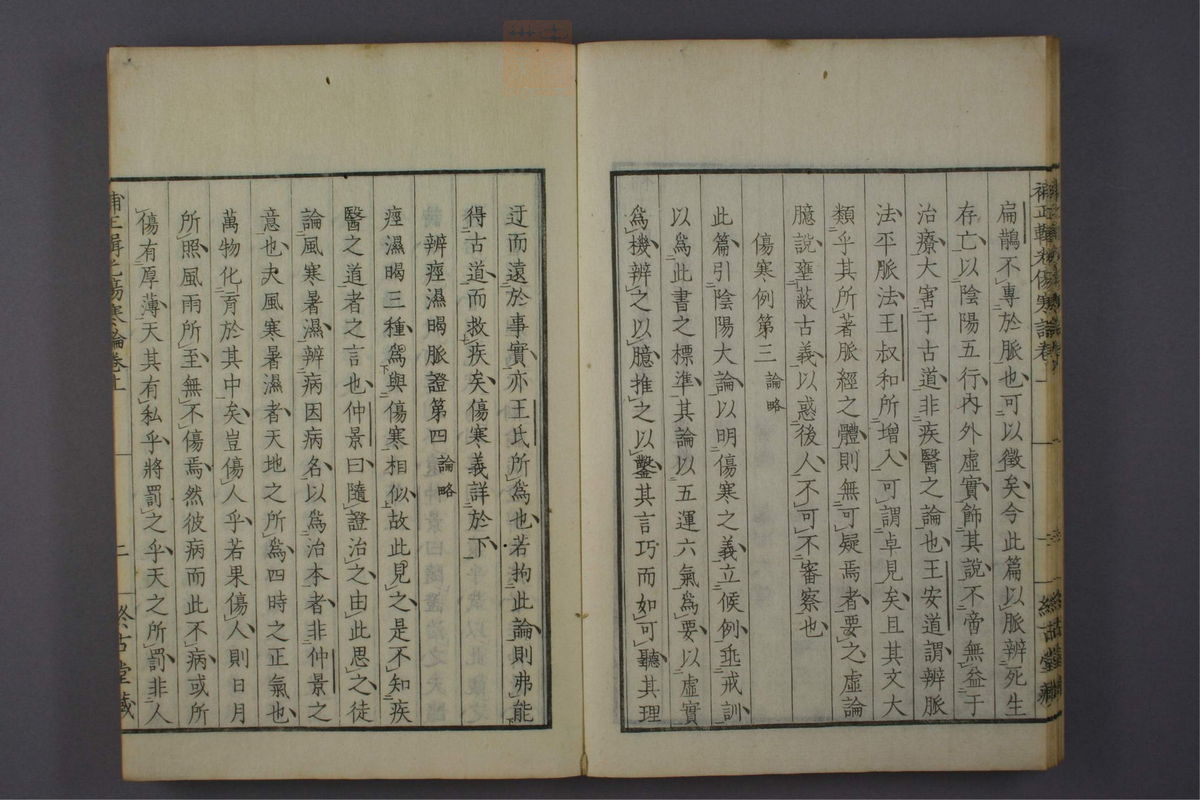 扁鵲不專於脈也可以徵矣今此篇以脈辨死生
存亡以陰陽五行內外虛實飾其說不啻無益于
治療大害于古道非疾醫之論也王安道謂辨脈
法平脈法王叔和所增入可謂卓見矣且其文大
類乎其所著脈經之體則無可疑焉者要之虛論
臆說壅蔽古義以惑後人不可不審察也
傷寒例第三 論略
此篇引陰陽大論以明傷寒之義立候例垂戒訓
以爲此書之標準其論以五運六氣爲要以虛實
爲機辨之以臆推之以鑿其言巧而如可聽其理
迂而遠於事實亦王氏所爲也若拘此論則弗能
得古道而救疾矣傷寒義詳於下
辨痙濕暍脈證第四 論略
痙濕暍三種爲與傷寒相似故此見之是不知疾
醫之道者之言也仲景曰隨證治之由此思之徒
論風寒暑濕辨病因病名以爲治本者非仲景之
意也夫風寒暑濕者天地之所爲四時之正氣也
萬物化育於其中矣豈傷人乎若果傷人則日月
所照風雨所至無不傷焉然彼病而此不病或所
傷有厚薄天其有私乎將罰之乎天之所罰非人
補正輯光傷寒論卷上
二
終古堂藏